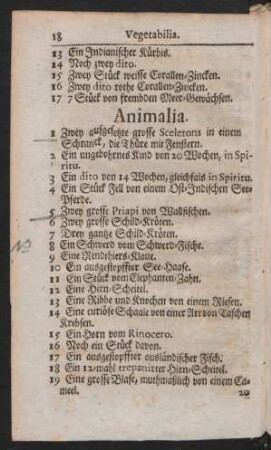 18 Vegetabilia.
13 Ein Indianischer Kürbis.
14 Noch zwey dito.
15 Zwey Stück weisse Corallen-Zincken.
16 Zwey dito rothe Corallen-Zincken.
17 7 Stück von frembden Meer-Gewächsen.
Animalia.
1 Zwey aufgesetzte grosse Sceletons in einem
Schranck, die Thüre mit Fenstern.
2 Ein ungebohrnes Kind von 20 Wochen, in Spi-
ritu.
3 Ein dito von 14 Wochen, gleichfals in Spiritu.
4 Ein Stück Fell von einem Ost-Indischen See-
Pferde.
5 Zwey grosse Priapi von Wallfischen.
6 Zwey grosse Schild-Kröten.
7 Drey gantze Schild-Kröten.
8 Ein Schwerd vom Schwerd-Fische.
9 Eine Rendthiers-Klaue.
10 Ein ausgestopffter See-Haase.
11 Ein Stück vom Elephanten-Zahn.
12 Eine Hirn-Scheitel.
13 Eine Ribbe und Knochen von einem Riesen.
14 Eine curiöse Schaale von einer Art von Taschen
Krebsen.
15 Ein Horn vom Rinocero.
16 Noch ein Stück davon.
17 Ein ausgestopffter ausländischer Fisch.
18 Ein 12-mahl trepanirter Hirn-Scheitel.
19 Eine grosse Blase, muthmaßlich von einem Ca-
meel.
20